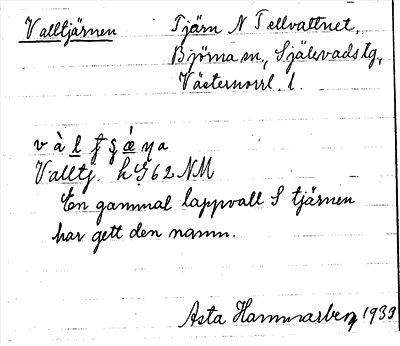 Valltjärnen
Tjärn N Tellvattnet,
Björna sn, Själevads tg,
Västernorrl. l.
Valltj.
62 NM
En gammal lappvall S tjärnen
har gett den namn.
Asta Hammarberg 1933